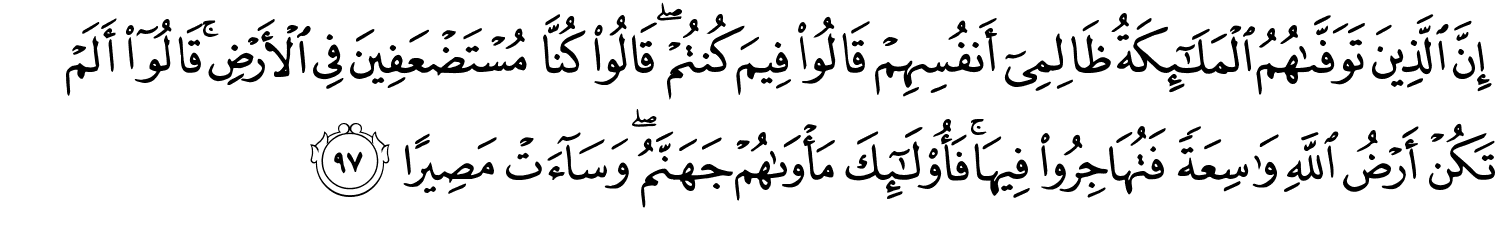 إِنَّ ٱلَّذِينَ تَوَفَّىٰهُمُ ٱلْمَلَـٰٓئِكَةُ ظَالِمِىٓ أَنفُسِهِمْ قَالُوا۟ فِيمَ كُنتُمْ ۖ قَالُوا۟ كُنَّا مُسْتَضْعَفِينَ فِى ٱلْأَرْضِ ۚ قَالُوٓا۟ أَلَمْ
تَكُنْ أَرْضُ ٱللَّهِ وَٰسِعَةً فَتُهَاجِرُوا۟ فِيهَا ۚ فَأُو۟لَـٰٓئِكَ مَأْوَىٰهُمْ جَهَنَّمُ ۖ وَسَآءَتْ مَصِيرًا ٩٧